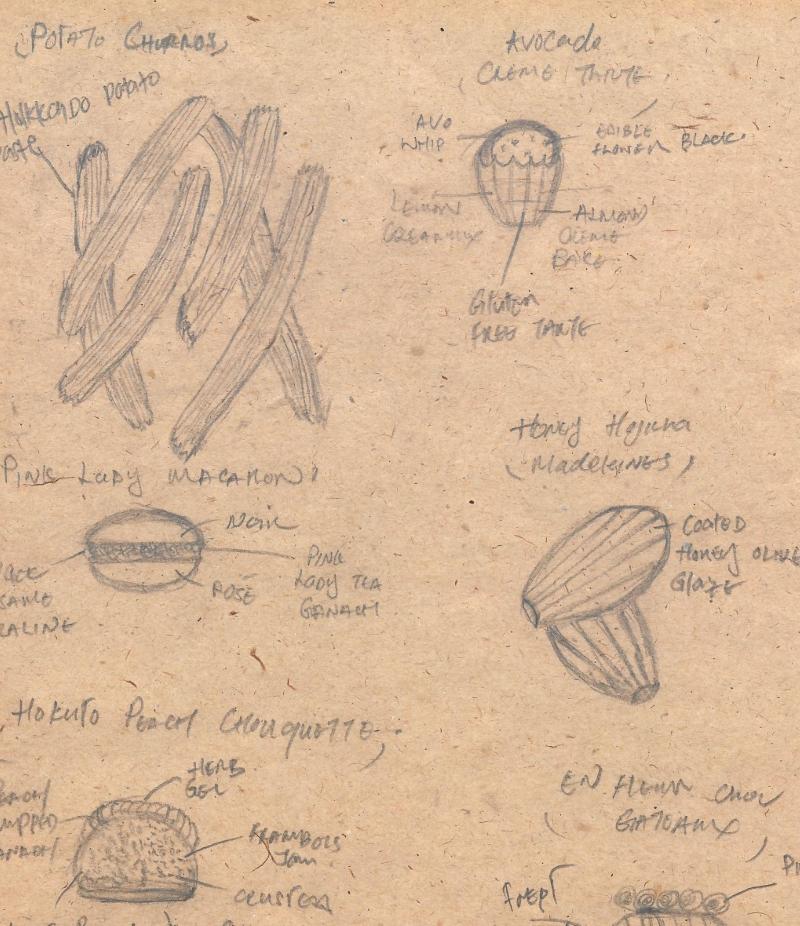 (POTATO CHURROS)
HOKKAIDO POTATO
PASTE
AVOCADO
(CREME TARTE)
AVO
WHIP
EDIBLE
FLOWER BLACK
LEMON
CREAMUX
ALMOND
CREME
BAKE
GLUTEN
FREE TARTE
PINK LADY MACARON)
NOIR
ROSE
PINK
LADY TEA
GANACH
SAME
RALINE
HONEY
(MADELEINES)
COATED
HONEY OLIVE
GLAZE
HOKUTO PEACH CHOUQUETTE
HERB
GEL
FRAMBOIS
JAM
CRUSTEA
EN FLEUR CHOU
(GATEAUX)